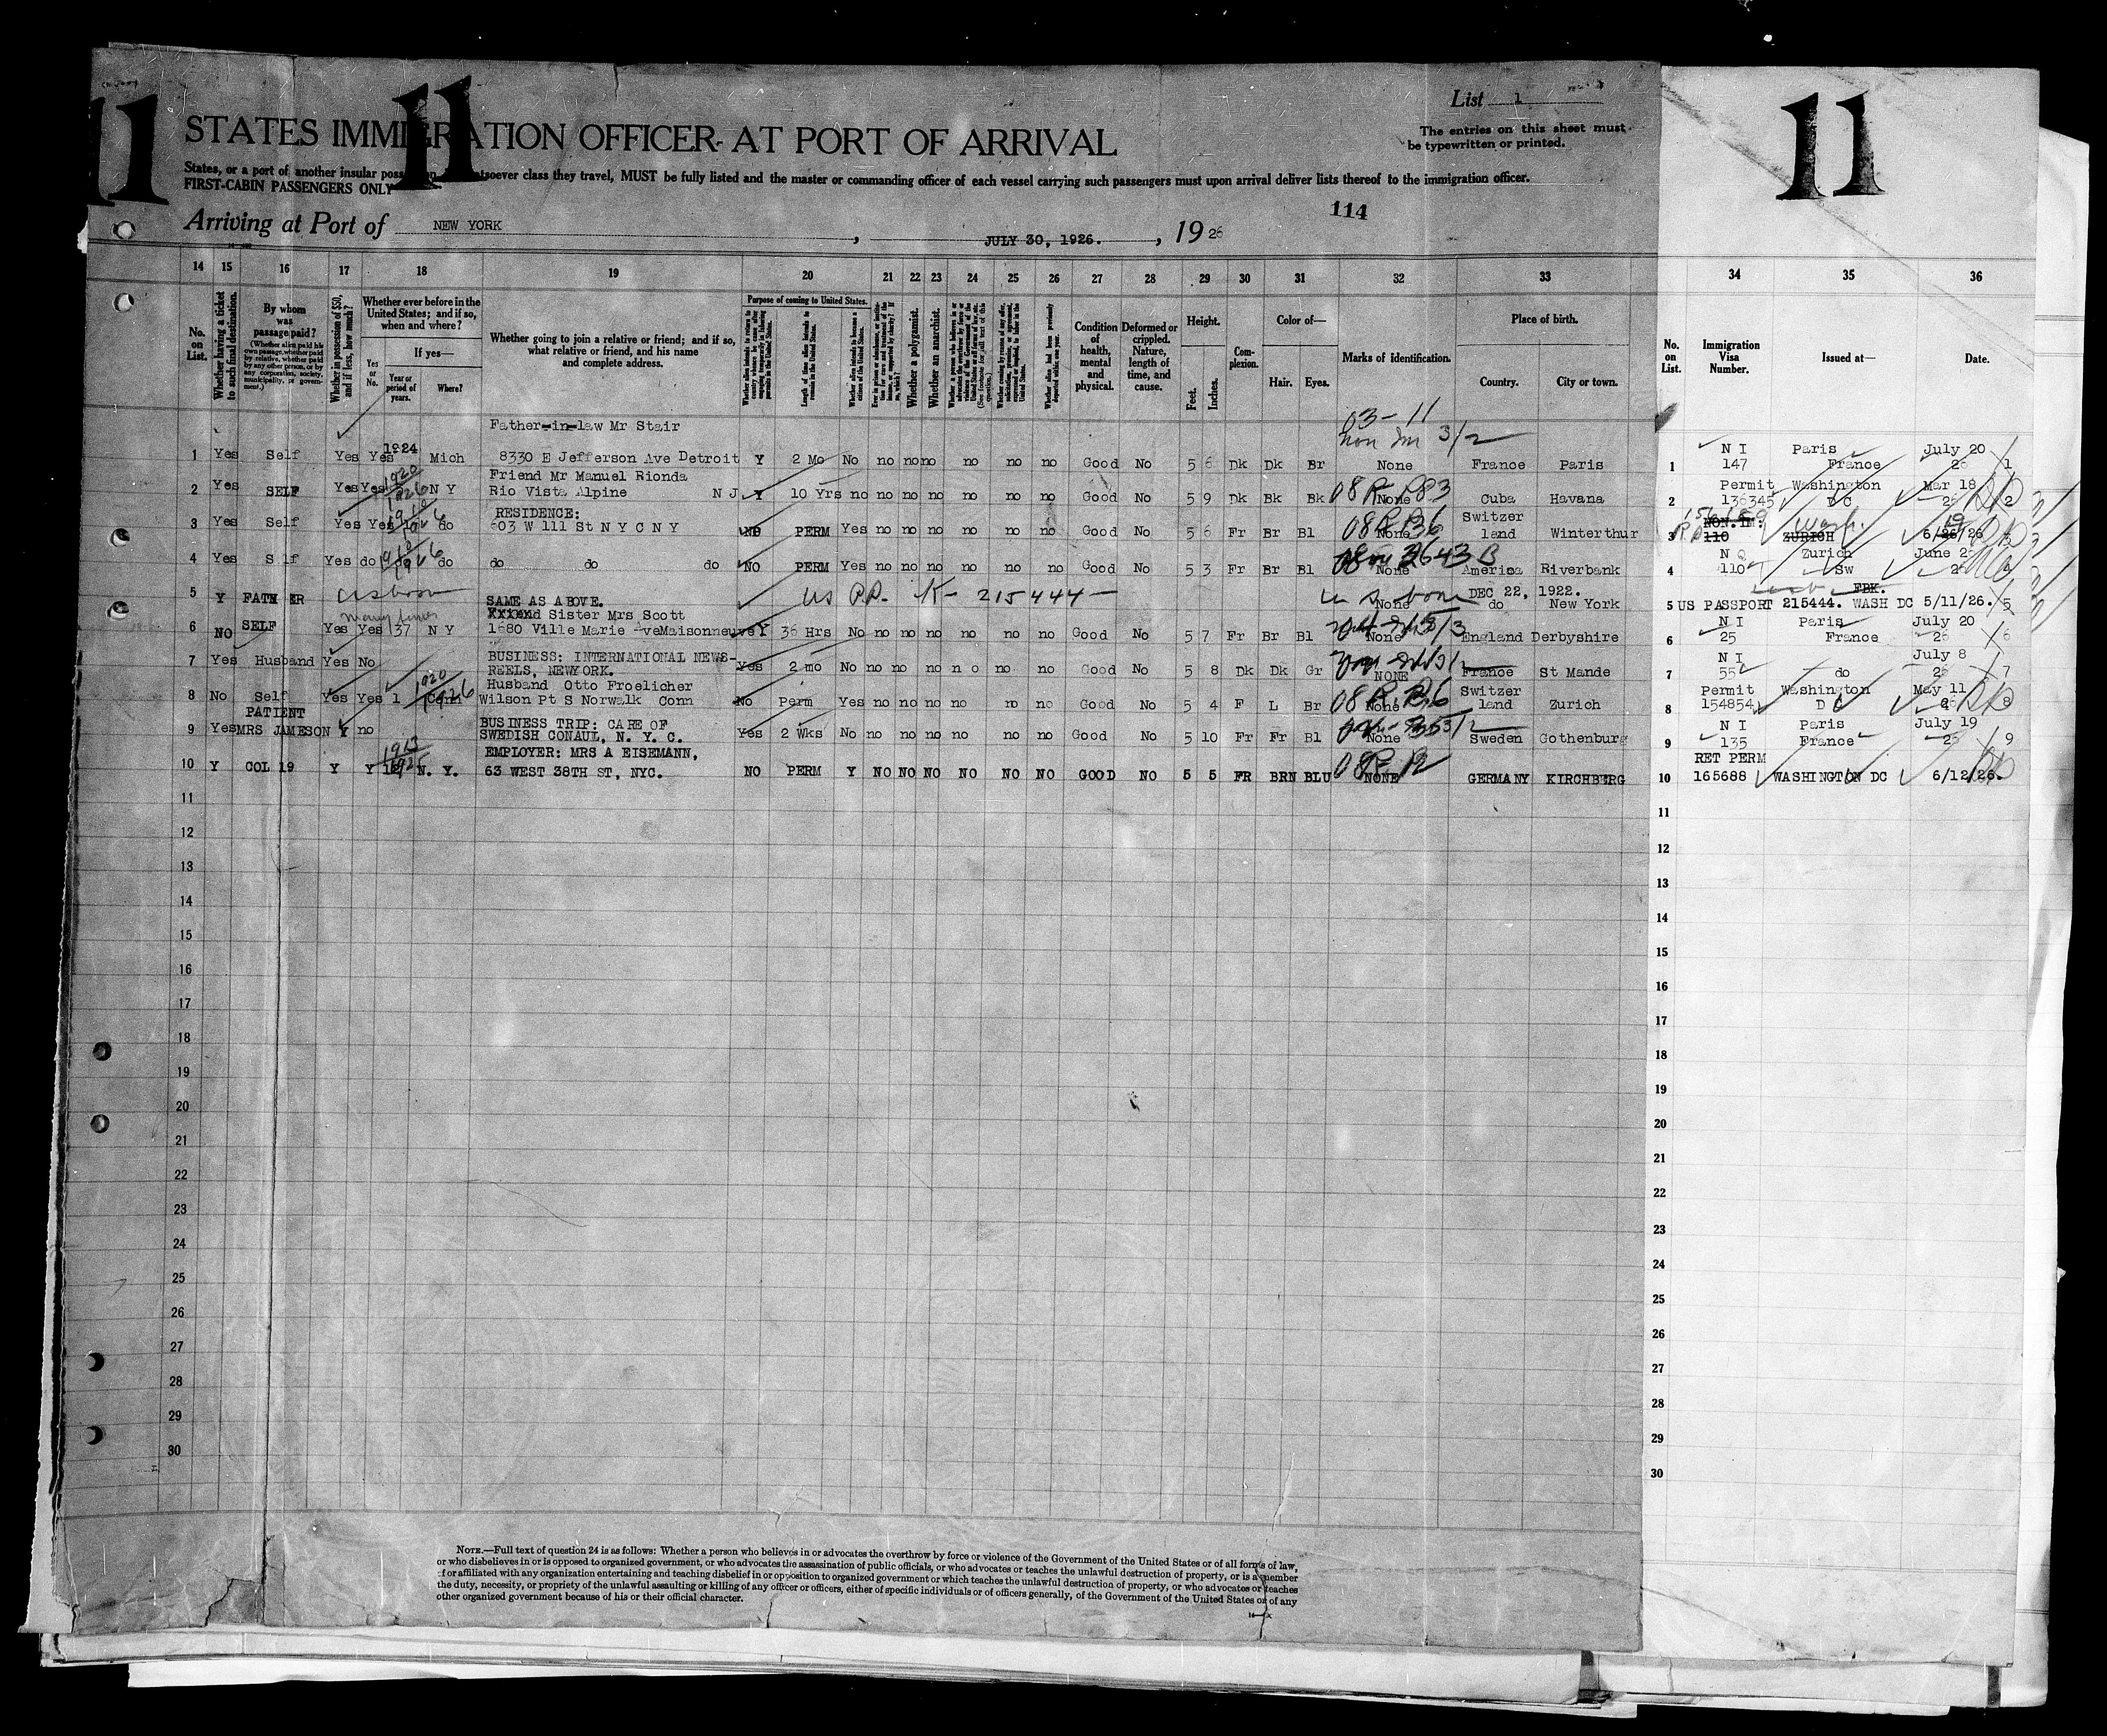 11
11
11
List 1
STATES IMMIGRATION OFFICER AT PORT OF ARRIVAL
The entries on this sheet must
be typewritten or printed.
States, or a port of another insular whatsoever class they travel, MUST be fully listed and the master or commanding officer of each vessel carrying such passengers must upon arrival deliver lists thereof to the immigration officer.
FIRST-CABIN PASSENGERS ONLY
114
Arriving at Port of NEW YORK, JULY 30, 1926., 1926
14 15 16 17 18 19 20 21 22 23 24 25 26 27 28 29 30 31 32 33 34 35 36
No. on List.
Whether having a ticket to such final destination.
By whom was passage paid?
(Whether alien paid his own passage, whether paid by relative, whether paid by any other person, or by any corporation, society, municipality, or government.)
Whether in possession of $50, and if less, how much?
Whether ever before in the United States; and if so, when and where?
Yes or No.
If yes—
Year or period of years.
Where?
Whether going to join a relative or friend; and if so, what relative or friend, and his name and complete address.
Purpose of coming to United States.
Length of time alien intends to remain in the United States.
Whether alien intends to become a citizen of the United States.
Whether a polygamist.
Whether an anarchist.
Condition of health, mental and physical.
Deformed or crippled. Nature, length of time, and cause.
Height.
Feet.
Inches.
Complexion.
Color of—
Hair.
Eyes.
Marks of identification.
Place of birth.
Country.
City or town.
No. on List.
Immigration Visa Number.
Issued at—
Date.
03-11
Non Im 3/2
Father-in-law Mr Stair
1924
N I Paris July 20
1 Yes Self Yes Yes Mich 8330 E Jefferson Ave Detroit Y 2 Mo No no no no no no no Good No 5 6 Dk Dk Br None France Paris 1 147 France 26 1
Friend Mr Manuel Rionda
Permit Washington Mar 18
2 Yes SELF Yes Yes 1920 1926 N Y Rio Vista Alpine N J Y 10 Yrs no no no no no no no Good No 5 9 Dk Bk Bk None Cuba Havana 2 136345 D C 26 2
RESIDENCE:
Switzer
3 Yes Self Yes Yes do 603 W 111 St N Y C N Y NO PERM Yes no no no no no no Good No 5 6 Fr Br Bl None land Winterthur 3 NON.IM. 110 ZURICH Wash. 6/26/26
N Q Zurich June 26
4 Yes S lf Yes do do do do do NO PERM Yes no no no no no no Good No 5 3 Fr Br Bl None America Riverbank 4 110 SW 26
5 Y FATHER SAME AS ABOVE. US PP. K- 215444- U S born None DEC 22, 1922. do New York 5 US PASSPORT 215444. WASH DC 5/11/26. 5
many times
Friend Sister Mrs Scott
N I Paris July 20
6 NO SELF Yes Yes 37 N Y 1680 Ville Marie AveMaisonneuve Y 36 Hrs No no no no no no no Good No 5 7 Fr Br Bl None England Derbyshire 6 25 France 26 6
BUSINESS: INTERNATIONAL NEWS-
N I July 8
7 Yes Husband Yes No REELS, NEWYORK. Yes 2 mo No no no no n o no no Good No 5 8 Dk Dk Gr NONE France St Mande 7 552 do 26 7
Husband Otto Froelicher
Switzer
Permit Washington May 11
8 No Self Yes Yes 1 Conn Wilson Pt S Norwalk Conn No Perm Yes no no no no no no Good No 5 4 F L Br None land Zurich 8 154854 D C 26 8
PATIENT
BUSINESS TRIP: CARE OF
N I Paris July 19
9 Yes MRS JAMESON Y no SWEDISH CONAUL, N. Y. C. Yes 2 Wks No no no no no no no Good No 5 10 Fr Fr Bl None Sweden Gothenburg 9 135 France 26 9
EMPLOYER: MRS A EISEMANN,
RET PERM
10 Y COL 19 Y Y N. Y. 63 WEST 38TH ST, NYC. NO PERM Y NO NO NO NO NO NO GOOD NO 5 5 FR BRN BLU NONE GERMANY KIRCHBERG 10 165688 WASHINGTON DC 6/12/26.
11 11
12 12
13 13
14 14
15 15
16 16
17 17
18 18
19 19
20 20
21 21
22 22
23 23
24 24
25 25
26 26
27 27
28 28
29 29
30 30
NOTE.—Full text of question 24 is as follows: Whether a person who believes in or advocates the overthrow by force or violence of the Government of the United States or of all forms of law,
or who disbelieves in or is opposed to organized government, or who advocates the assassination of public officials, or who advocates or teaches the unlawful destruction of property, or is a member
of or affiliated with any organization entertaining and teaching disbelief in or opposition to organized government or which teaches the unlawful destruction of property, or who advocates or teaches
the duty, necessity, or propriety of the unlawful assaulting or killing of any officer or officers, either of specific individuals or of officers generally, of the Government of the United States or of any
other organized government because of his or their official character.